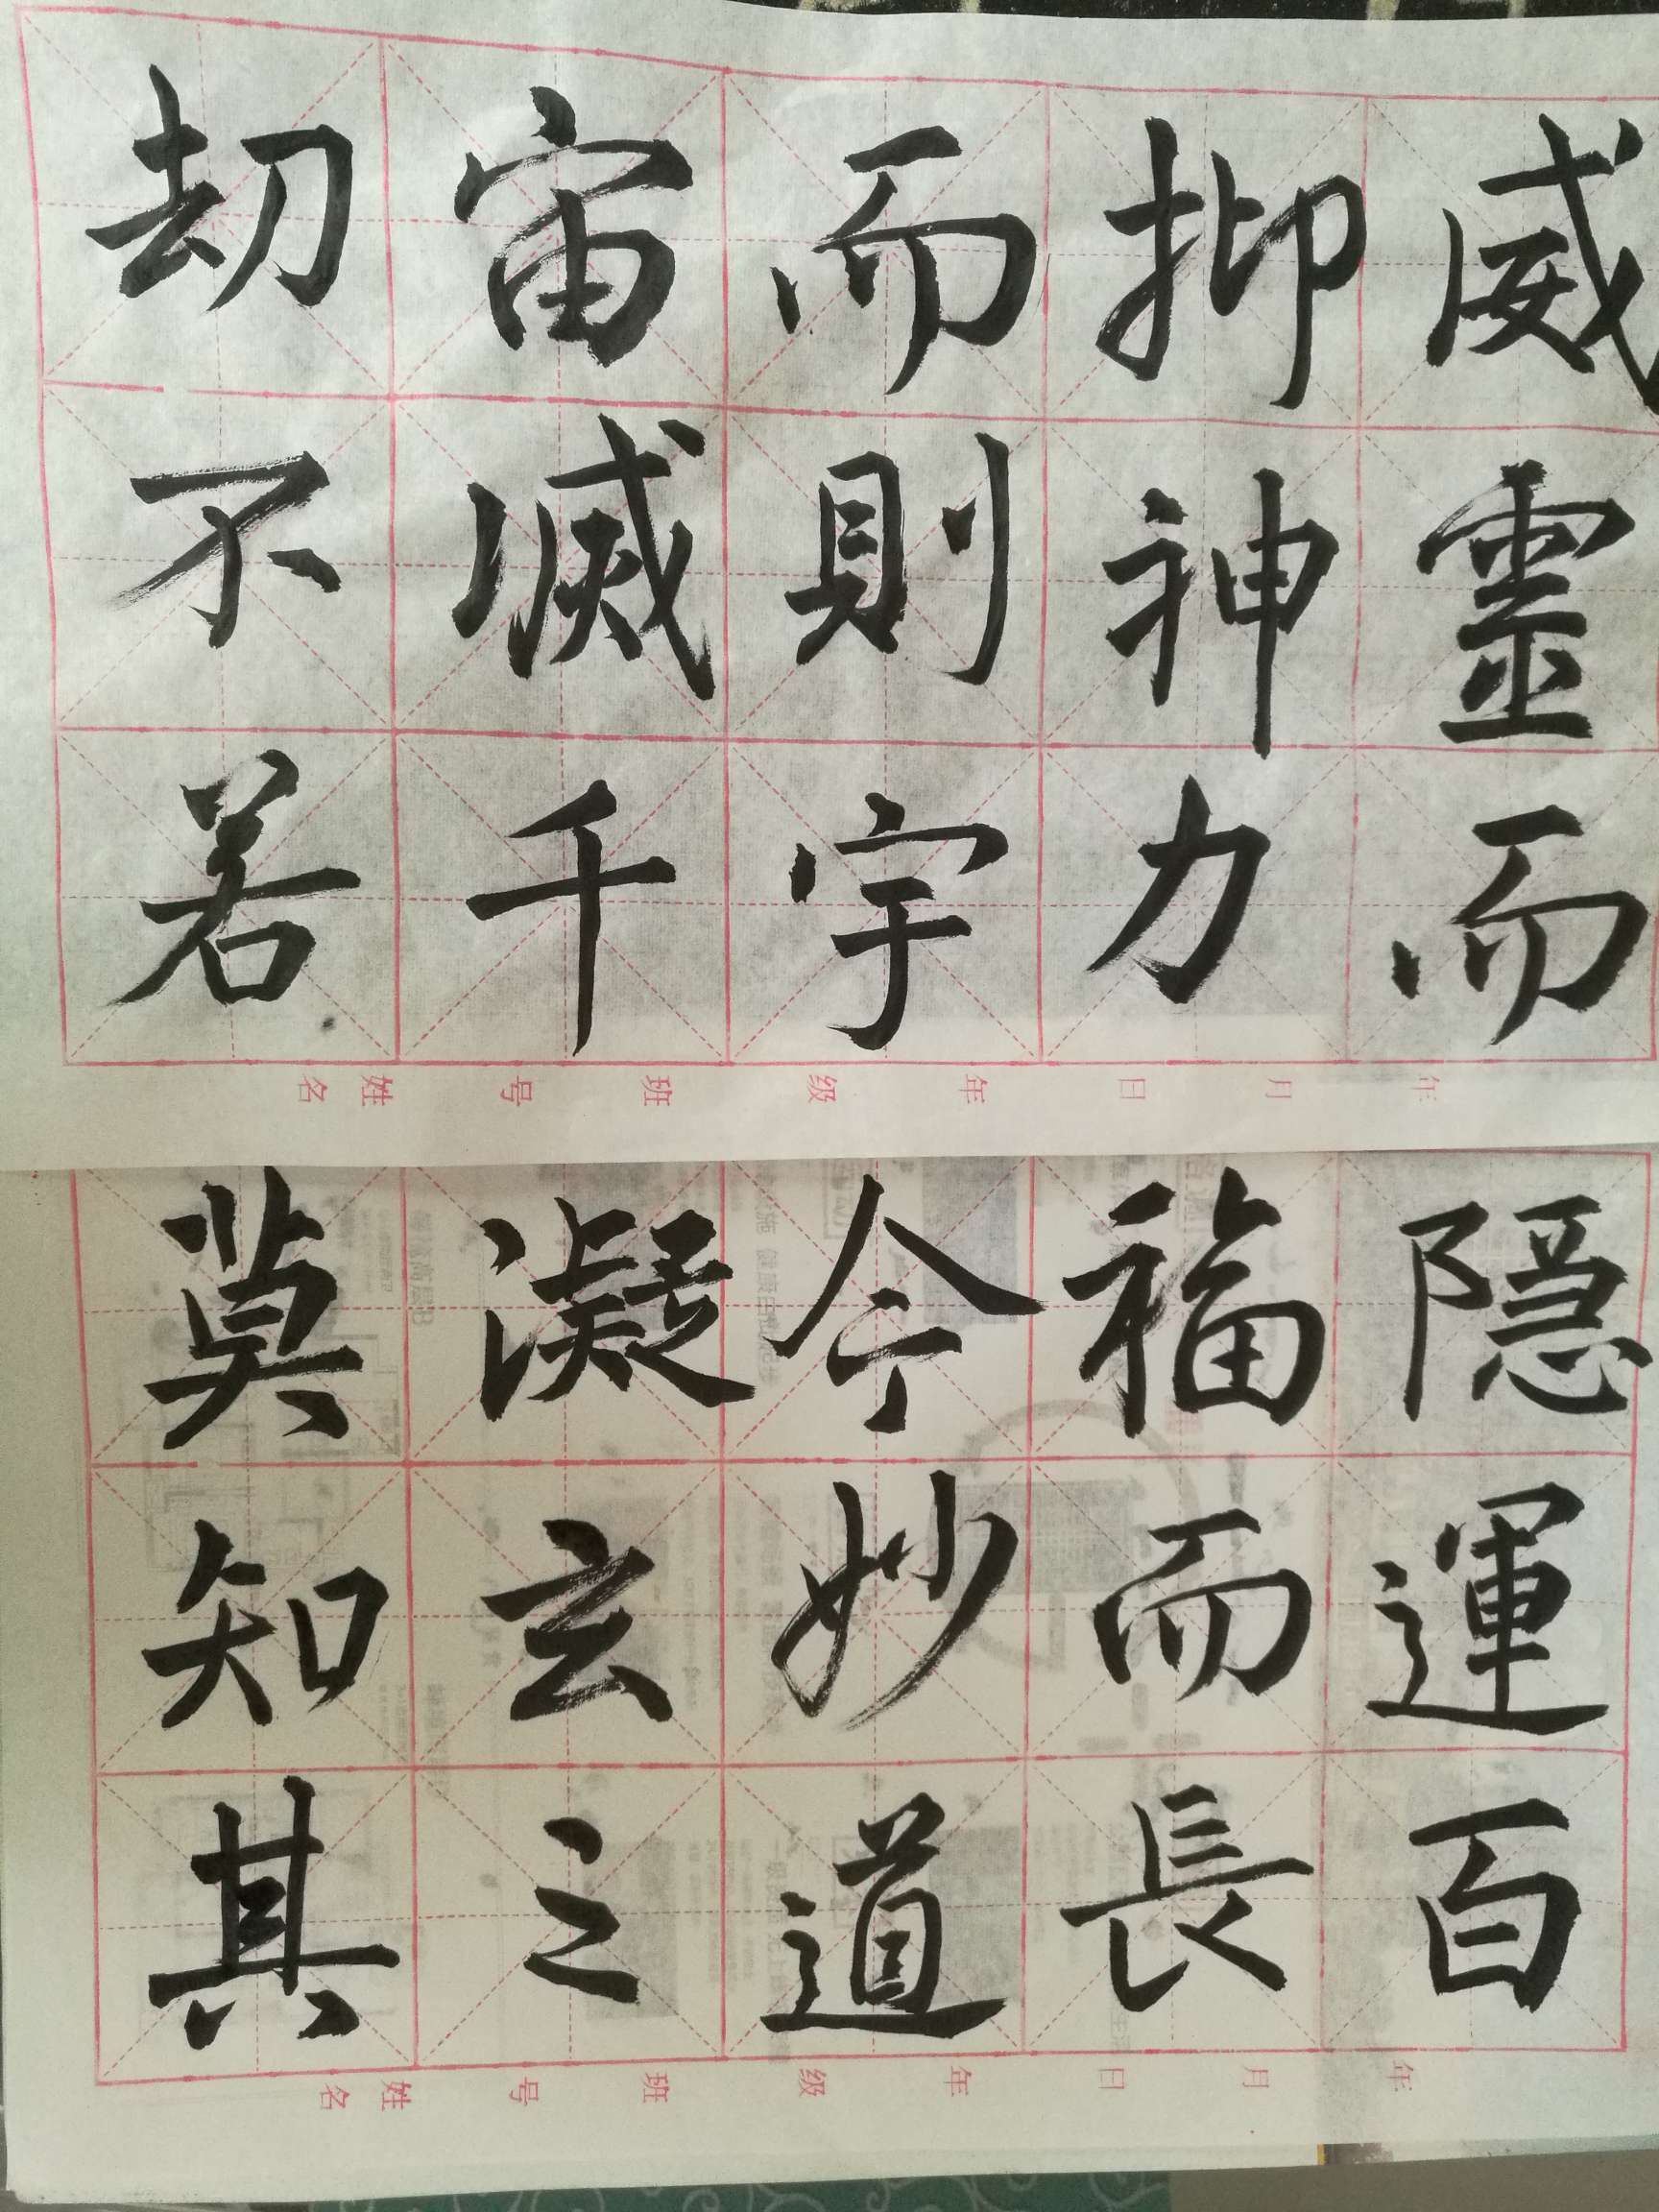 威靈而
抑神力
而則宇
宙滅千
劫不若
年月日年级班号姓名
隱運百
福而長
今妙道
凝玄之
莫知其
年月日年级班号姓名